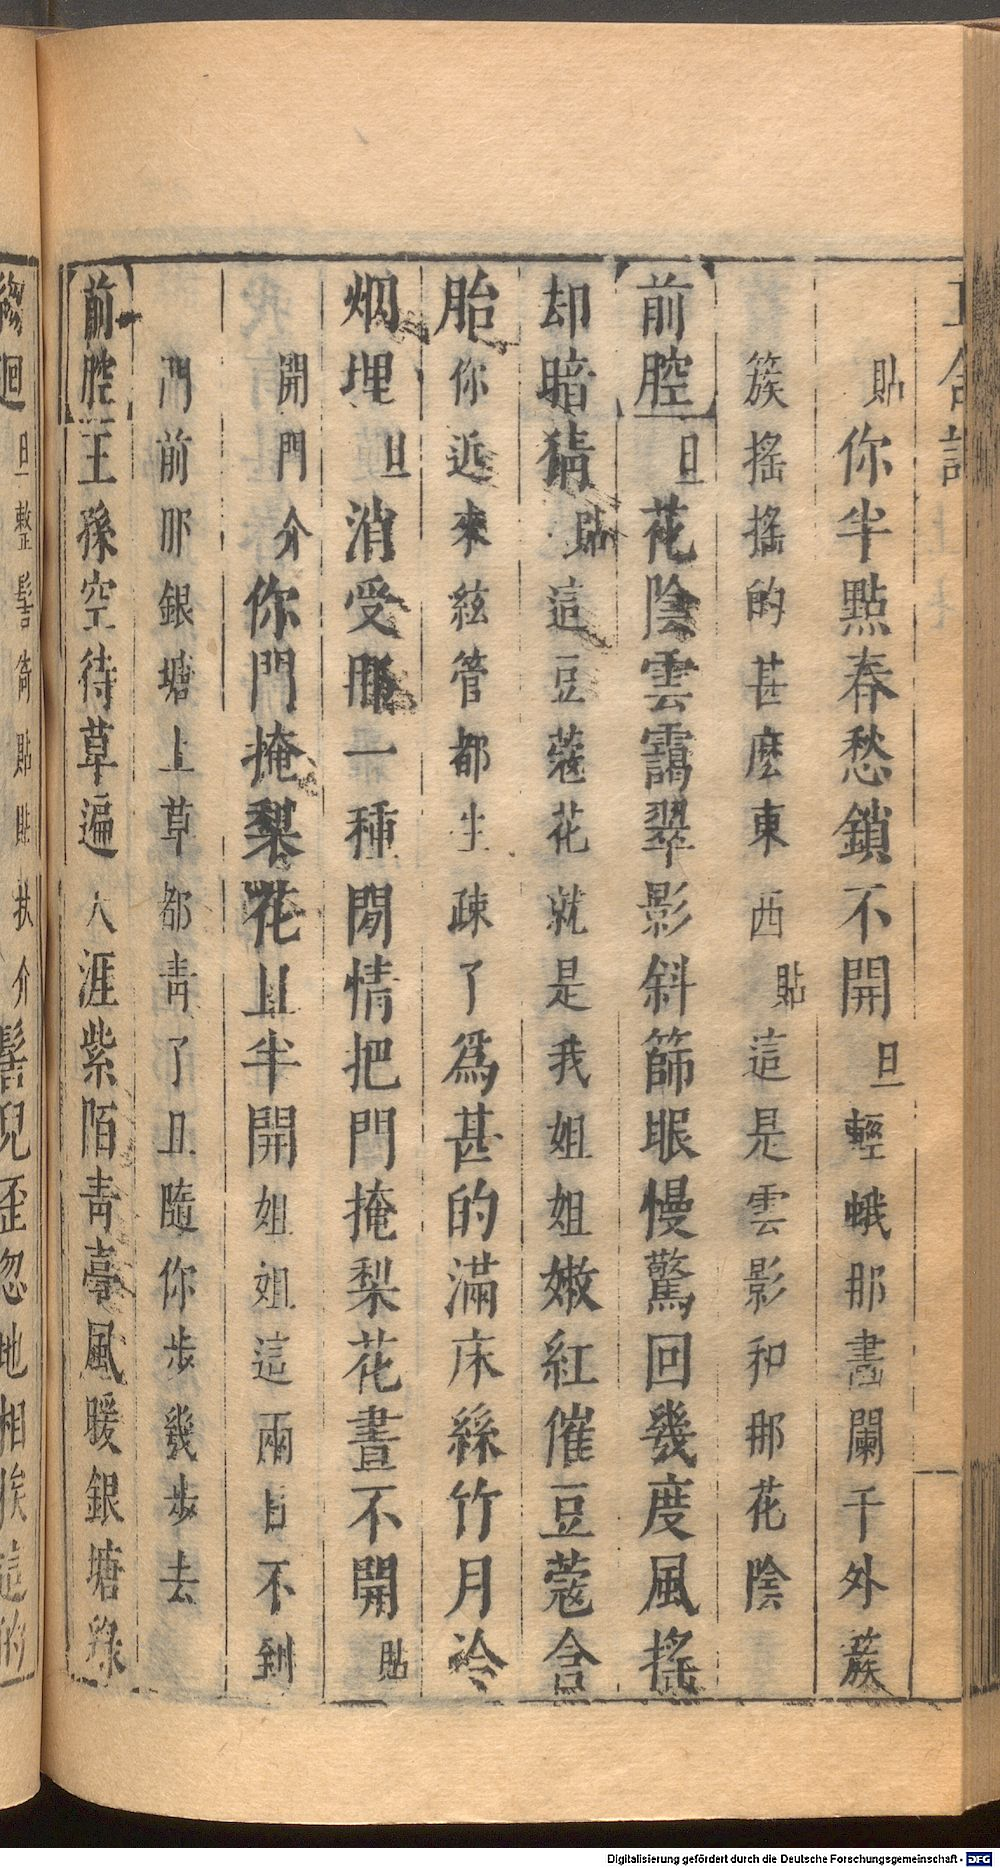 貼你半點春愁鎖不開旦輕蛾那畵闌干外蔟
簇搖搖的甚麽東西貼這是雲影和那花陰
前腔旦花陰雲靄翠影斜篩眼慢驚回幾度風搖
却暗猜貼這豆蔻花就是我姐姐嫩紅催豆蔻含
胎你近來絃管都生疎了爲甚的滿床絲竹月冷
烟埋旦消受那一種閒情把門掩梨花晝不開貼
開門介你門掩梨花且半開姐姐這兩日不到
門前那銀塘上草都靑了且隨你步幾步去
前腔王孫空待草遍天涯紫陌靑臺風暖銀塘綠
迴旦整髻倚貼貼扶介髻兒歪忽地相挨這的
Digitalisierung gefördert durch die Deutsche Forschungsgemeinschaft - DFG